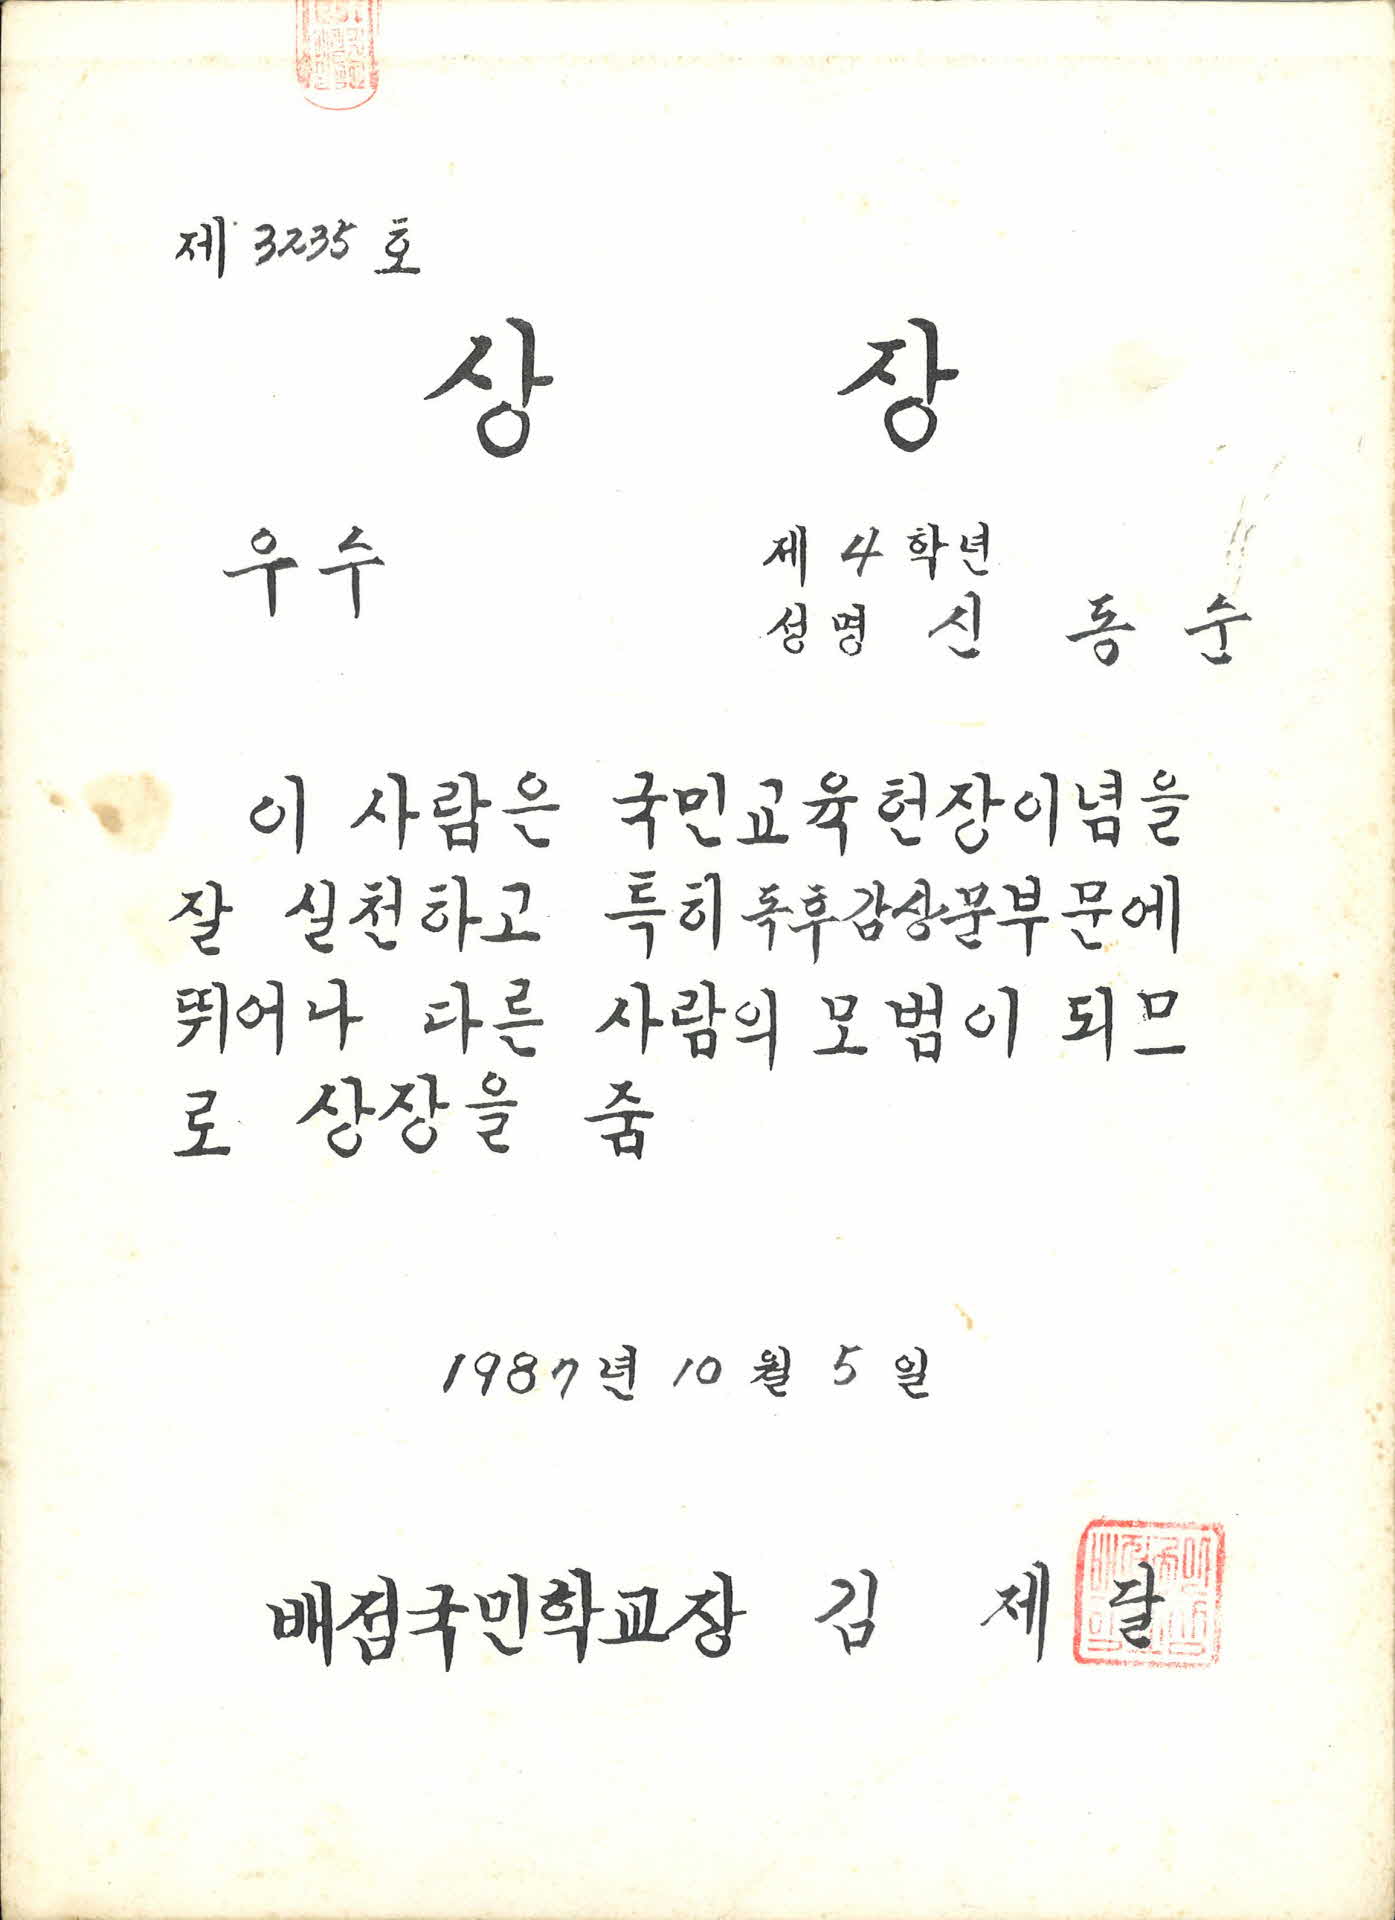 제 3235 호
상 장
우수
제 4 학년
성명 신 동 순
이 사람은 국민교육헌장이념을
잘 실천하고 특히 독후감상문부문에
뛰어나 다른 사람의 모범이 되므
로 상장을 줌
1987년 10월 5일
배점국민학교장 김 제 달